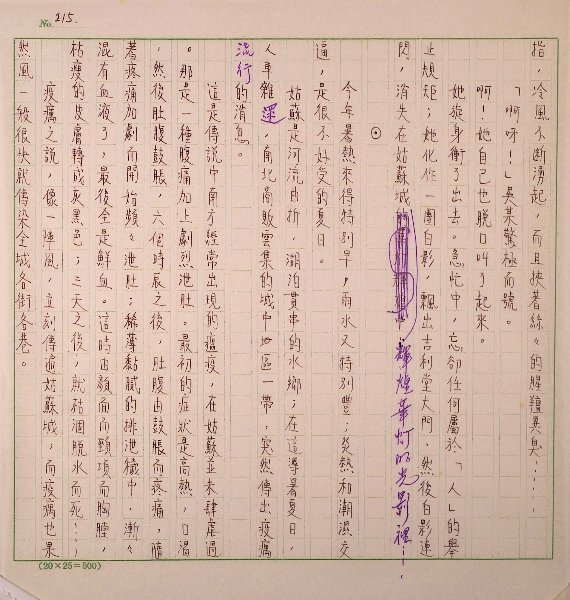 No. 215.
指，冷風不斷湧起，而且挾著絲々的腥羶臭息……
「啊呀！」吳某驚極而號。
啊！她自己也脫口叫了起來。
她旋身衝了出去。急忙中，忘卻任何屬於「人」的舉
止規矩；她化作一團白影，飄出吉利堂大門，然後白影連
閃，消失在姑蘇城的輝煌華灯的光影裡……
⊙
今年暑熱來得特別早，雨水又特別豐；炎熱和潮濕交
逼，是很不好受的夏日。
姑蘇是河流曲折，湖泊貫串的水鄉；在這溽暑夏日，
人車雜遝，南北商販雲集的城中心區一帶，突然傳出疫癘
流行的消息。
這是傳說中南方經常出現的瘟疫，在姑蘇並未肆虐過
。那是一種腹痛加上劇烈泄肚。最初的症狀是高熱，口渴
，然後肚腹鼓脹，六個時辰之後，肚腹由鼓脹而疼痛，隨
著疼痛加劇而開始頻々泄肚；稀薄黏膩的排泄穢中，漸々
混有血液了，最後全是鮮血。這時由顏面而頸項而胸膛，
枯瘦的皮膚轉成灰黑色；三天之後，就枯涸脫水而死……
疫癘之說，像一陣風，立刻傳遍姑蘇城，而疫癘也果
然風一般很快就傳染全城各街各巷。
(20×25=500)